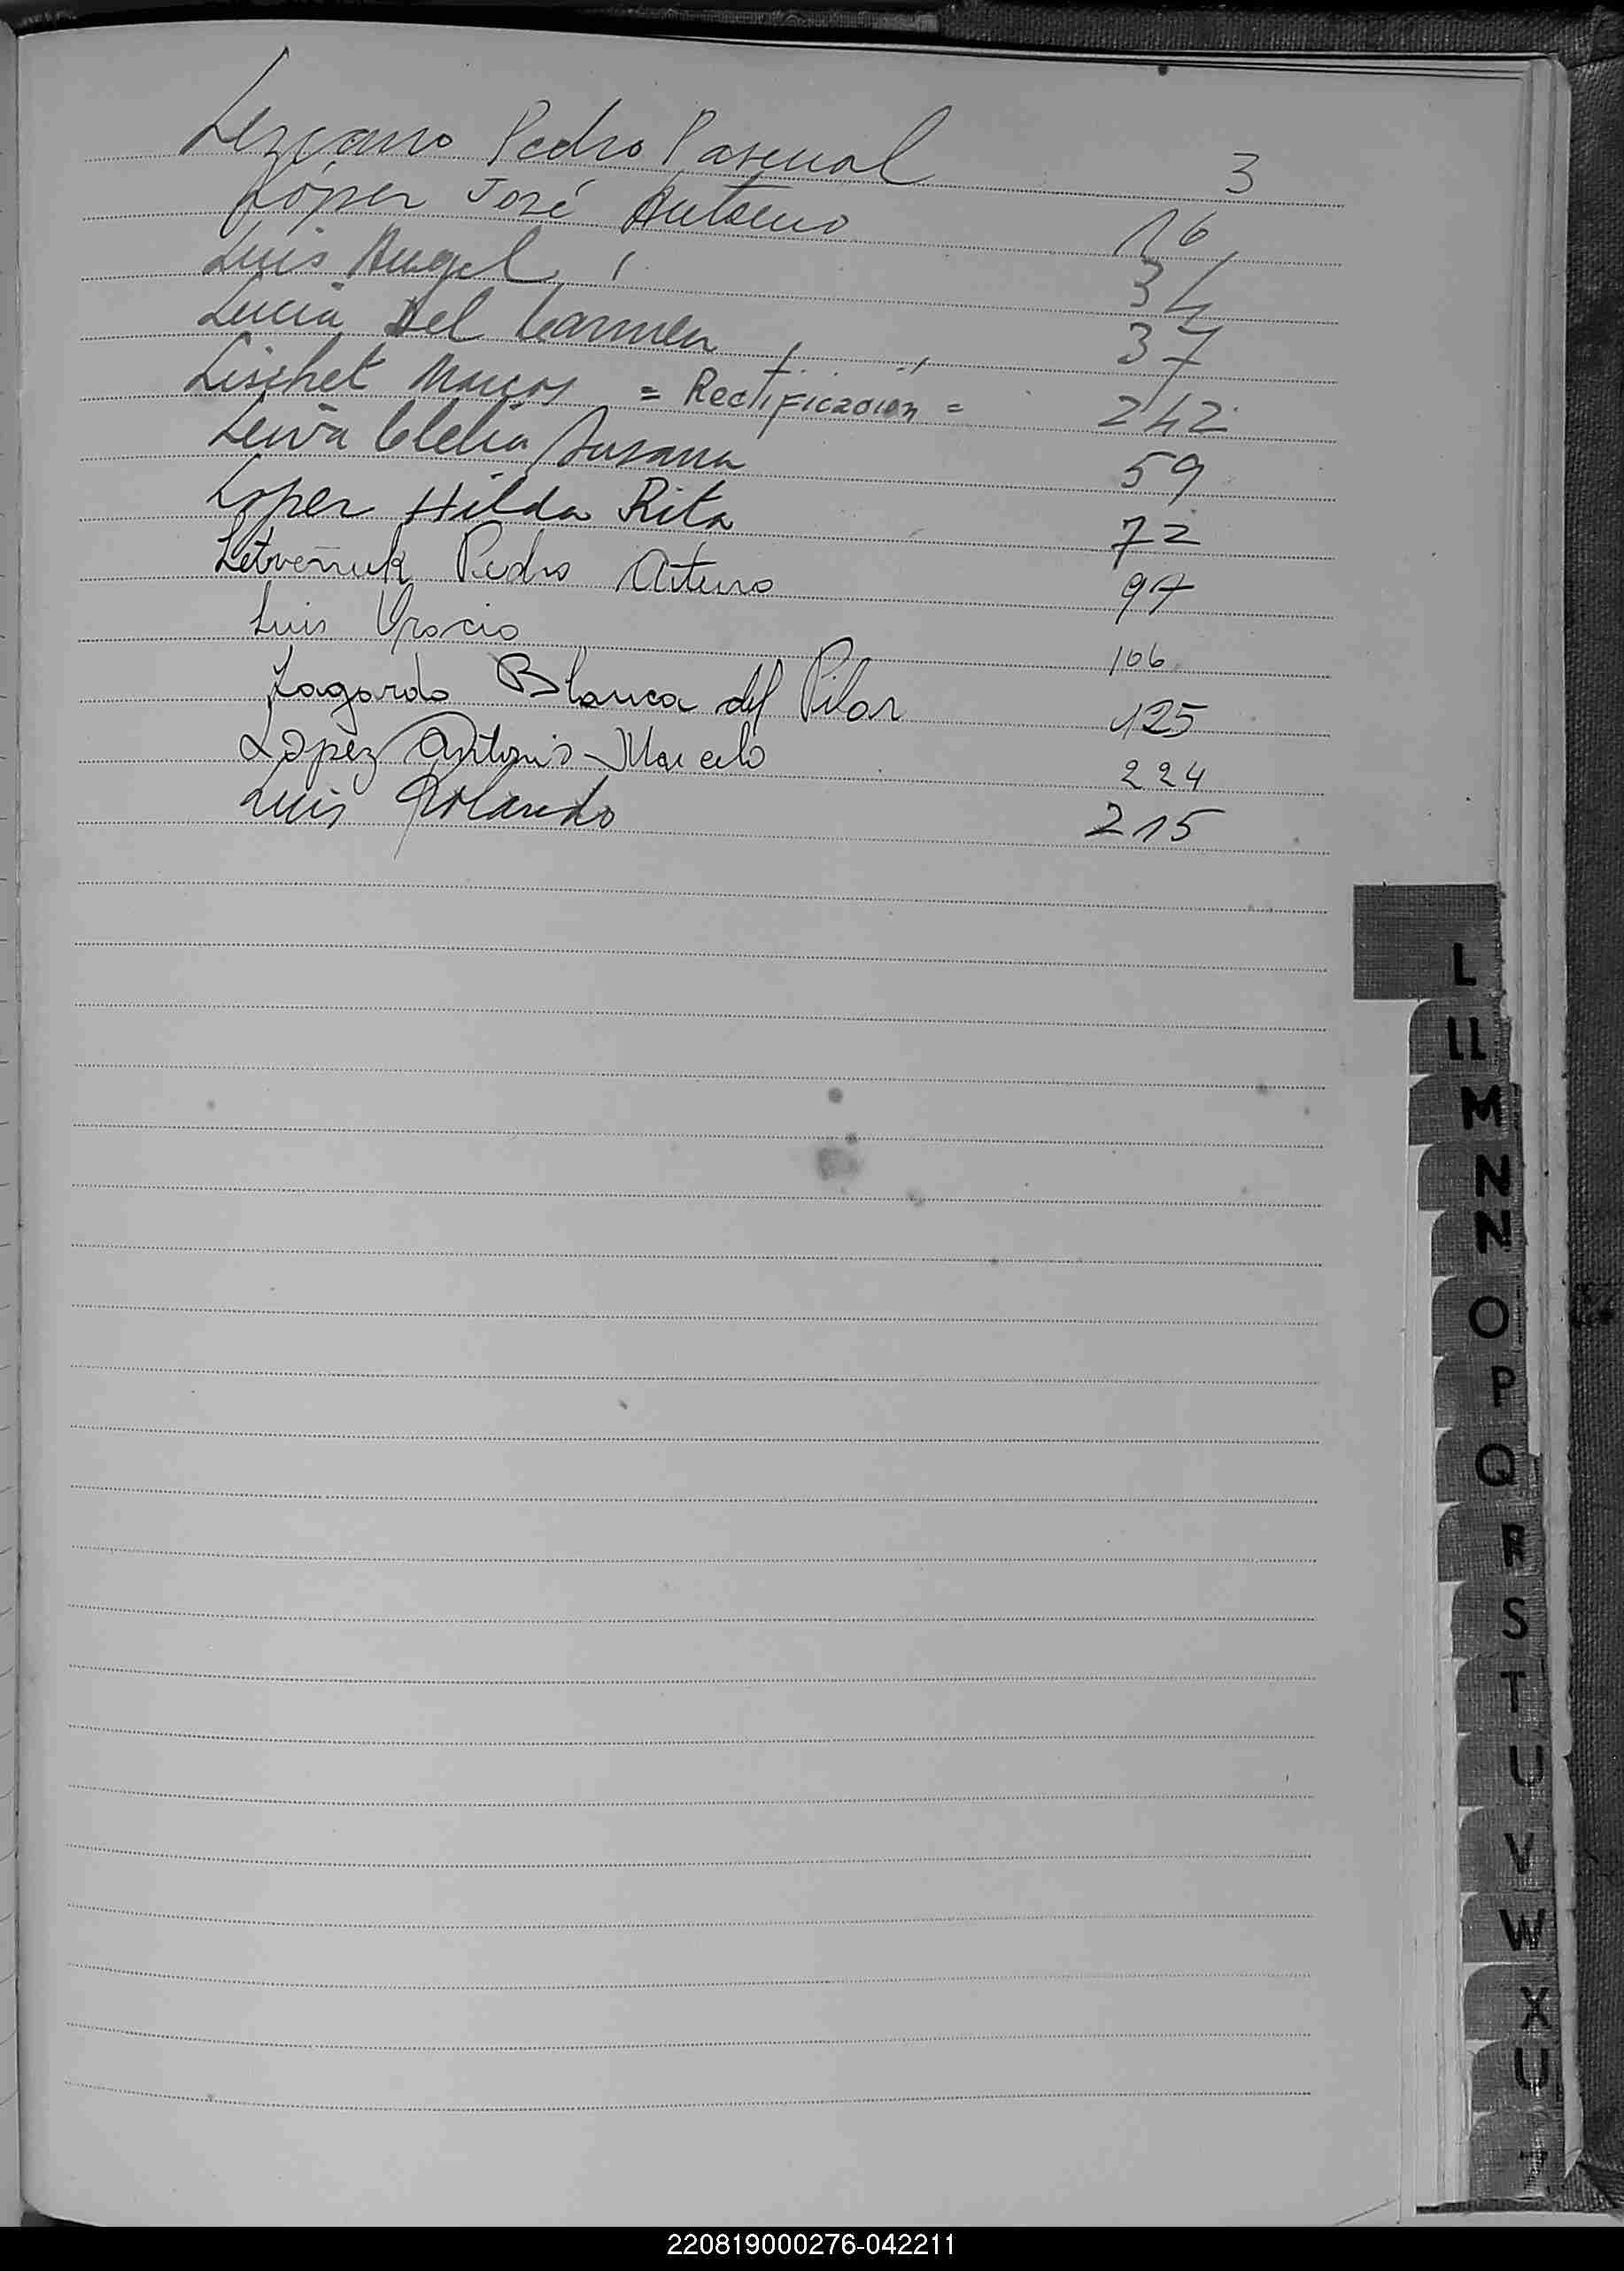 Lezcano Pedro Pascual 3
López José Antonio 16
Luis Angel 34
Lucia Del Carmen 37
Lischet Marcos = Rectificación = 242
Leiva Clelia Susana 59
Lopez Hilda Rita 72
Pedro Arturo 97
Luis Orocio 106
Lagardo Blanca del Pilar 125
Lopez Antonio Marcelo 224
Luis Rolando 215
L
LL
M
N
N
O
P
Q
R
S
T
U
V
W
X
220819000276-042211